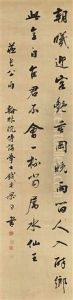 朝曦迎客艷重岡晚雨留人入醉鄉
此意自佳君不會一杯當屬水仙王
翰林院侍講